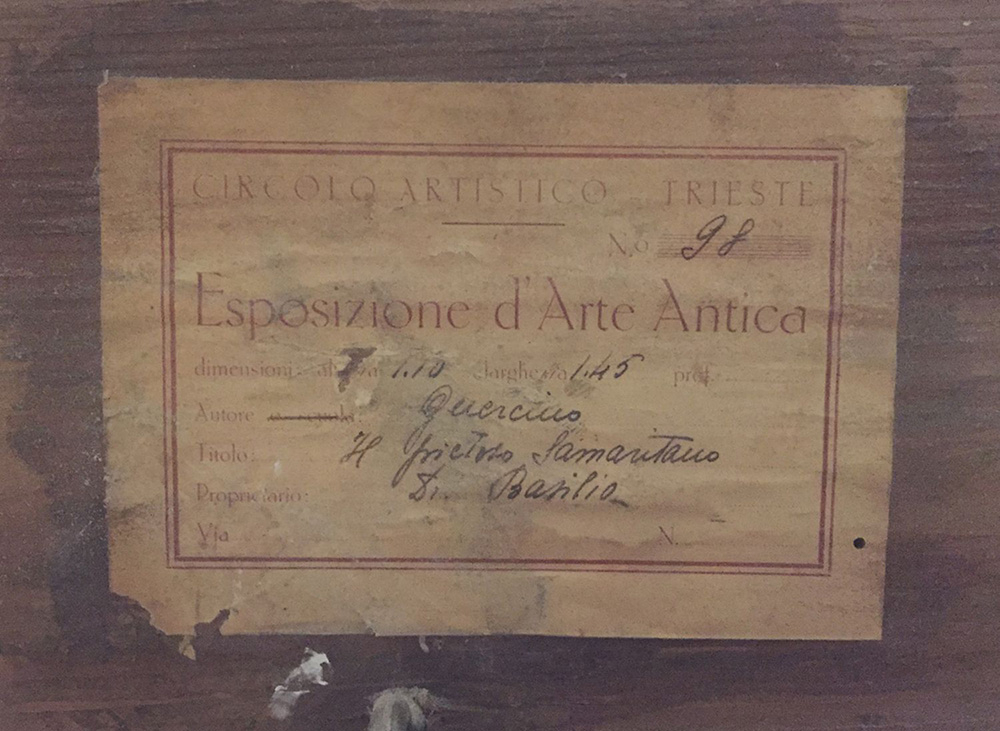 CIRCOLO ARTISTICO TRIESTE
N.o 98
Esposizione d'Arte Antica
dimensioni: altezza 1.10 larghezza 1.45 prof.
Autore o scuola: Guercino
Titolo: Il pietoso Samaritano
Proprietario: Dr. Basilio
Via N. –